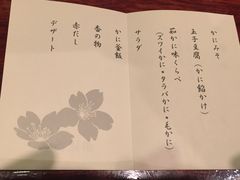 かにみそ
玉子豆腐(かに餡かけ)
茹かに味くらべ
(ズワイかに・タラバかに・毛かに)
サラダ
かに釜飯
香の物
赤だし
デザート